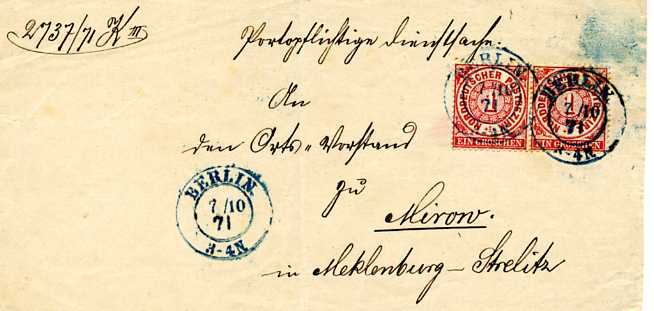 2737/71 K III
Portopflichtige Dienstsache.
An
den Orts-Vorstand
zu
Mirow.
in Meklenburg-Strelitz
NORDDEUTSCHER POSTBEZIRK
1
EIN GROSCHEN
NORDDEUTSCHER POSTBEZIRK
1
EIN GROSCHEN
BERLIN
7/10
71
3-4N
BERLIN
7/10
71
3-4N
BERLIN
7/10
71
3-4N